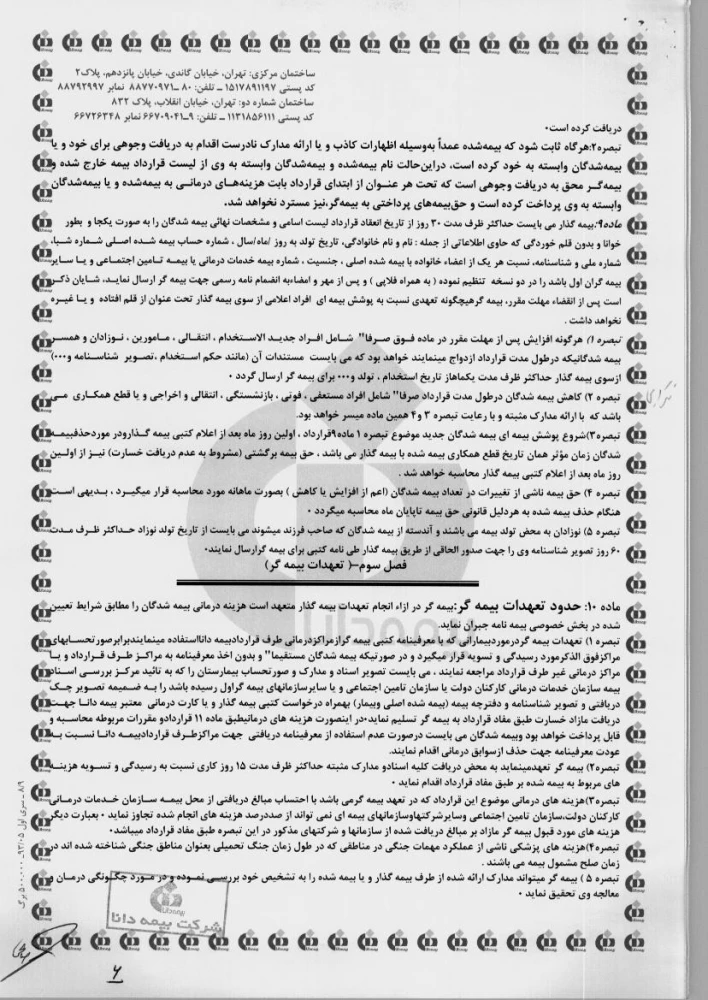 ساختمان مرکزی: تهران، خیابان گاندی، خیابان پانزدهم، پلاک۲
کد پستی ۱۵۱۷۸۹۱۱۹۷ ـ تلفن: ۸۰ ـ۸۸۷۷۰۹۷۱ نمابر ۸۸۷۹۲۹۹۷
ساختمان شماره دو: تهران، خیابان انقلاب، پلاک ۸۳۲
کد پستی ۱۱۳۱۸۵۶۱۱۱ ـ تلفن: ۹ـ۶۶۷۰۹۰۴۱ نمابر ۶۶۷۲۶۳۴۸
دریافت کرده است.
تبصره۲:هرگاه ثابت شود که بیمه‌شده عمداً به‌وسیله اظهارات کاذب و یا ارائه مدارک نادرست اقدام به دریافت وجوهی برای خود و یا
بیمه‌شدگان وابسته به خود کرده است، دراین‌حالت نام بیمه‌شده و بیمه‌شدگان وابسته به وی از لیست قرارداد بیمه خارج شده و
بیمه‌گـر محق به دریافت وجوهی است که تحت هر عنـوان از ابتدای قرارداد بابت هزینه‌هـای درمانـی به بیمه‌شده و یا بیمه‌شدگان
وابسته به وی پرداخت کرده است و حق‌بیمه‌های پرداختی به بیمه‌گر،نیز مسترد نخواهد شد.
ماده۹:بیمه گذار می بایست حداکثر ظرف مدت ۳۰ روز از تاریخ انعقاد قرارداد لیست اسامی و مشخصات نهائی بیمه شدگان را به صورت یکجا و بطور
خوانا و بدون قلم خوردگی که حاوی اطلاعاتی از جمله : نام و نام خانوادگی، تاریخ تولد به روز /ماه/سال ، شماره حساب بیمه شـده اصـلی شـماره شبا،
شماره ملی و شناسنامه، نسبت هر یک از اعضاء خانواده با بیمه شده اصلی ، جنسیت ، شماره بیمه خدمات درمانی یا بیمـه تـامین اجتمـاعی و یـا سـایر
بیمه گران اول باشد را در دو نسخه تنظیم نموده ( به همراه فلاپی ) و پس از مهر و امضاءبه انضمام نامه رسمی جهت بیمه گر ارسال نمایـد، شـایان ذکـر
است پس از انقضاء مهلت مقرر، بیمه گرهیچگونه تعهدی نسبت به پوشش بیمه ای افراد اعلامی از سوی بیمه گذار تحت عنوان از قلم افتاده و یـا غیـره
نخواهد داشت .
تبصره ۱) هرگونه افزایش پس از مهلت مقرر در ماده فـوق صـرفا" شـامل افـراد جدیـد الاسـتخدام ، انتقـالی ، مـامورین ، نـوزادان و همسـر
بیمه شدگانیکه درطول مدت قرارداد ازدواج مینمایند خواهد بود که می بایست مستندات آن (مانند حکم اسـتخدام ،تصـویر شناسـنامه و...)
ازسوی بیمه گذار حداکثر ظرف مدت یکماهاز تاریخ استخدام ، تولد و... برای بیمه گر ارسال گردد .
تبصره ۲) کاهش بیمه شدگان درطول مدت قرارداد صرفا" شامل افراد مستعفی ، فوتی ، بازنشستگی ، انتقالی و اخراجی و یا قطع همکـاری مـی
باشد که با ارائه مدارک مثبته و با رعایت تبصره ۳ و۴ همین ماده میسر خواهد بود.
تبصره۳)شروع پوشش بیمه ای بیمه شدگان جدید موضوع تبصره ۱ ماده۹قرارداد ، اولین روز ماه بعد از اعلام کتبی بیمه گـذارودر موردحذفبیمـه
شدگان زمان مؤثر همان تاریخ قطع همکاری بیمه شده با بیمه گذار می باشد ، حق بیمه برگشتی (مشروط به عدم دریافت خسارت) نیـز از اولـین
روز ماه بعد از اعلام کتبی بیمه گذار محاسبه خواهد شد .
تبصره ۴) حق بیمه ناشی از تغییرات در تعداد بیمه شدگان (اعم از افزایش یا کاهش ) بصورت ماهانه مورد محاسبه قرار میگیـرد ، بـدیهی اسـت
هنگام حذف بیمه شده به هردلیل قانونی حق بیمه تاپایان ماه محاسبه میگردد .
تبصره ۵) نوزادان به محض تولد بیمه می باشند و آندسته از بیمه شدگان که صاحب فرزند میشوند می بایست از تاریخ تولد نوزاد حـداکثر ظـرف مـدت
۶۰ روز تصویر شناسنامه وی را جهت صدور الحاقی از طریق بیمه گذار طی نامه کتبی برای بیمه گرارسال نمایند.
فصل سوم–( تعهدات بیمه گر)
ماده ۱۰: حدود تعهدات بیمه گر:بیمه گر در ازاء انجام تعهدات بیمه گذار متعهد است هزینه درمانی بیمه شدگان را مطابق شرایط تعیین
شده در بخش خصوصی بیمه نامه جبران نماید.
تبصره ۱) تعهدات بیمه گردرموردبیمارانی که با معرفینامه کتبی بیمه گرازمراکزدرمانی طرف قراردادبیمه دانااستفاده مینمایندبرابرصورتحسـابهای
مراکزفوق الذکرمورد رسیدگی و تسویه قرار میگیرد و در صورتیکه بیمه شدگان مستقیما" و بدون اخذ معرفینامه به مراکـز طـرف قـرارداد و یـا
مراکز درمانی غیر طرف قرارداد مراجعه نمایند ، می بایست تصویر اسناد و مدارک و صورتحساب بیمارستان را که به تائید مرکـز بررسـی اسـناد
بیمه سازمان خدمات درمانی کارکنان دولت یا سازمان تامین اجتماعی و یا سایرسازمانهای بیمه گراول رسیده باشد را بـه ضـمیمه تصـویر چـک
دریافتی و تصویر شناسنامه و دفترچه بیمه (بیمه شده اصلی وبیمار) بهمراه درخواست کتبی بیمه گذار و یا کارت درمانی معتبر بیمه دانـا جهـت
دریافت مازاد خسارت طبق مفاد قرارداد به بیمه گر تسلیم نماید.در اینصورت هزینه های درمانیطبق ماده ۱۱ قراردادو مقررات مربوطه محاسـبه و
قابل پرداخت خواهد بود وبیمه شدگان می بایست درصورت عدم استفاده از معرفینامه دریافتی جهت مراکزطـرف قراردادبیمـه دانـا نسـبت بـه
عودت معرفینامه جهت حذف ازسوابق درمانی اقدام نمایند.
تبصره۲) بیمه گر تعهدمینماید به محض دریافت کلیه اسنادو مدارک مثبته حداکثر ظرف مدت ۱۵ روز کاری نسبت به رسیدگی و تسـویه هزینـه
های مربوط به بیمه شده بر طبق مفاد قرارداد اقدام نماید .
تبصره۳)هزینه های درمانی موضوع این قرارداد که در تعهد بیمه گرمی باشد با احتساب مبالغ دریافتی از محل بیمـه سـازمان خـدمات درمـانی
کارکنان دولت،سازمان تامین اجتماعی وسایرشرکتهاوسازمانهای بیمه ای نمی تواند از صددرصد هزینه های انجام شده تجاوز نماید . بعبارت دیگر
هزینه های مورد قبول بیمه گر مازاد بر مبالغ دریافت شده از سازمانها و شرکتهای مذکور در این تبصره طبق مفاد قرارداد میباشد.
تبصره۴)هزینه های پزشکی ناشی از عملکرد مهمات جنگی در مناطقی که در طول زمان جنگ تحمیلی بعنوان مناطق جنگی شناخته شده اند در
زمان صلح مشمول بیمه می باشند .
تبصره ۵ ) بیمه گر میتواند مدارک ارائه شده از طرف بیمه گذار و یا بیمه شده را به تشخیص خود بررسـی نمـوده و در مـورد چگـونگی درمـان و
معالجه وی تحقیق نماید .
شرکت بیمه دانا